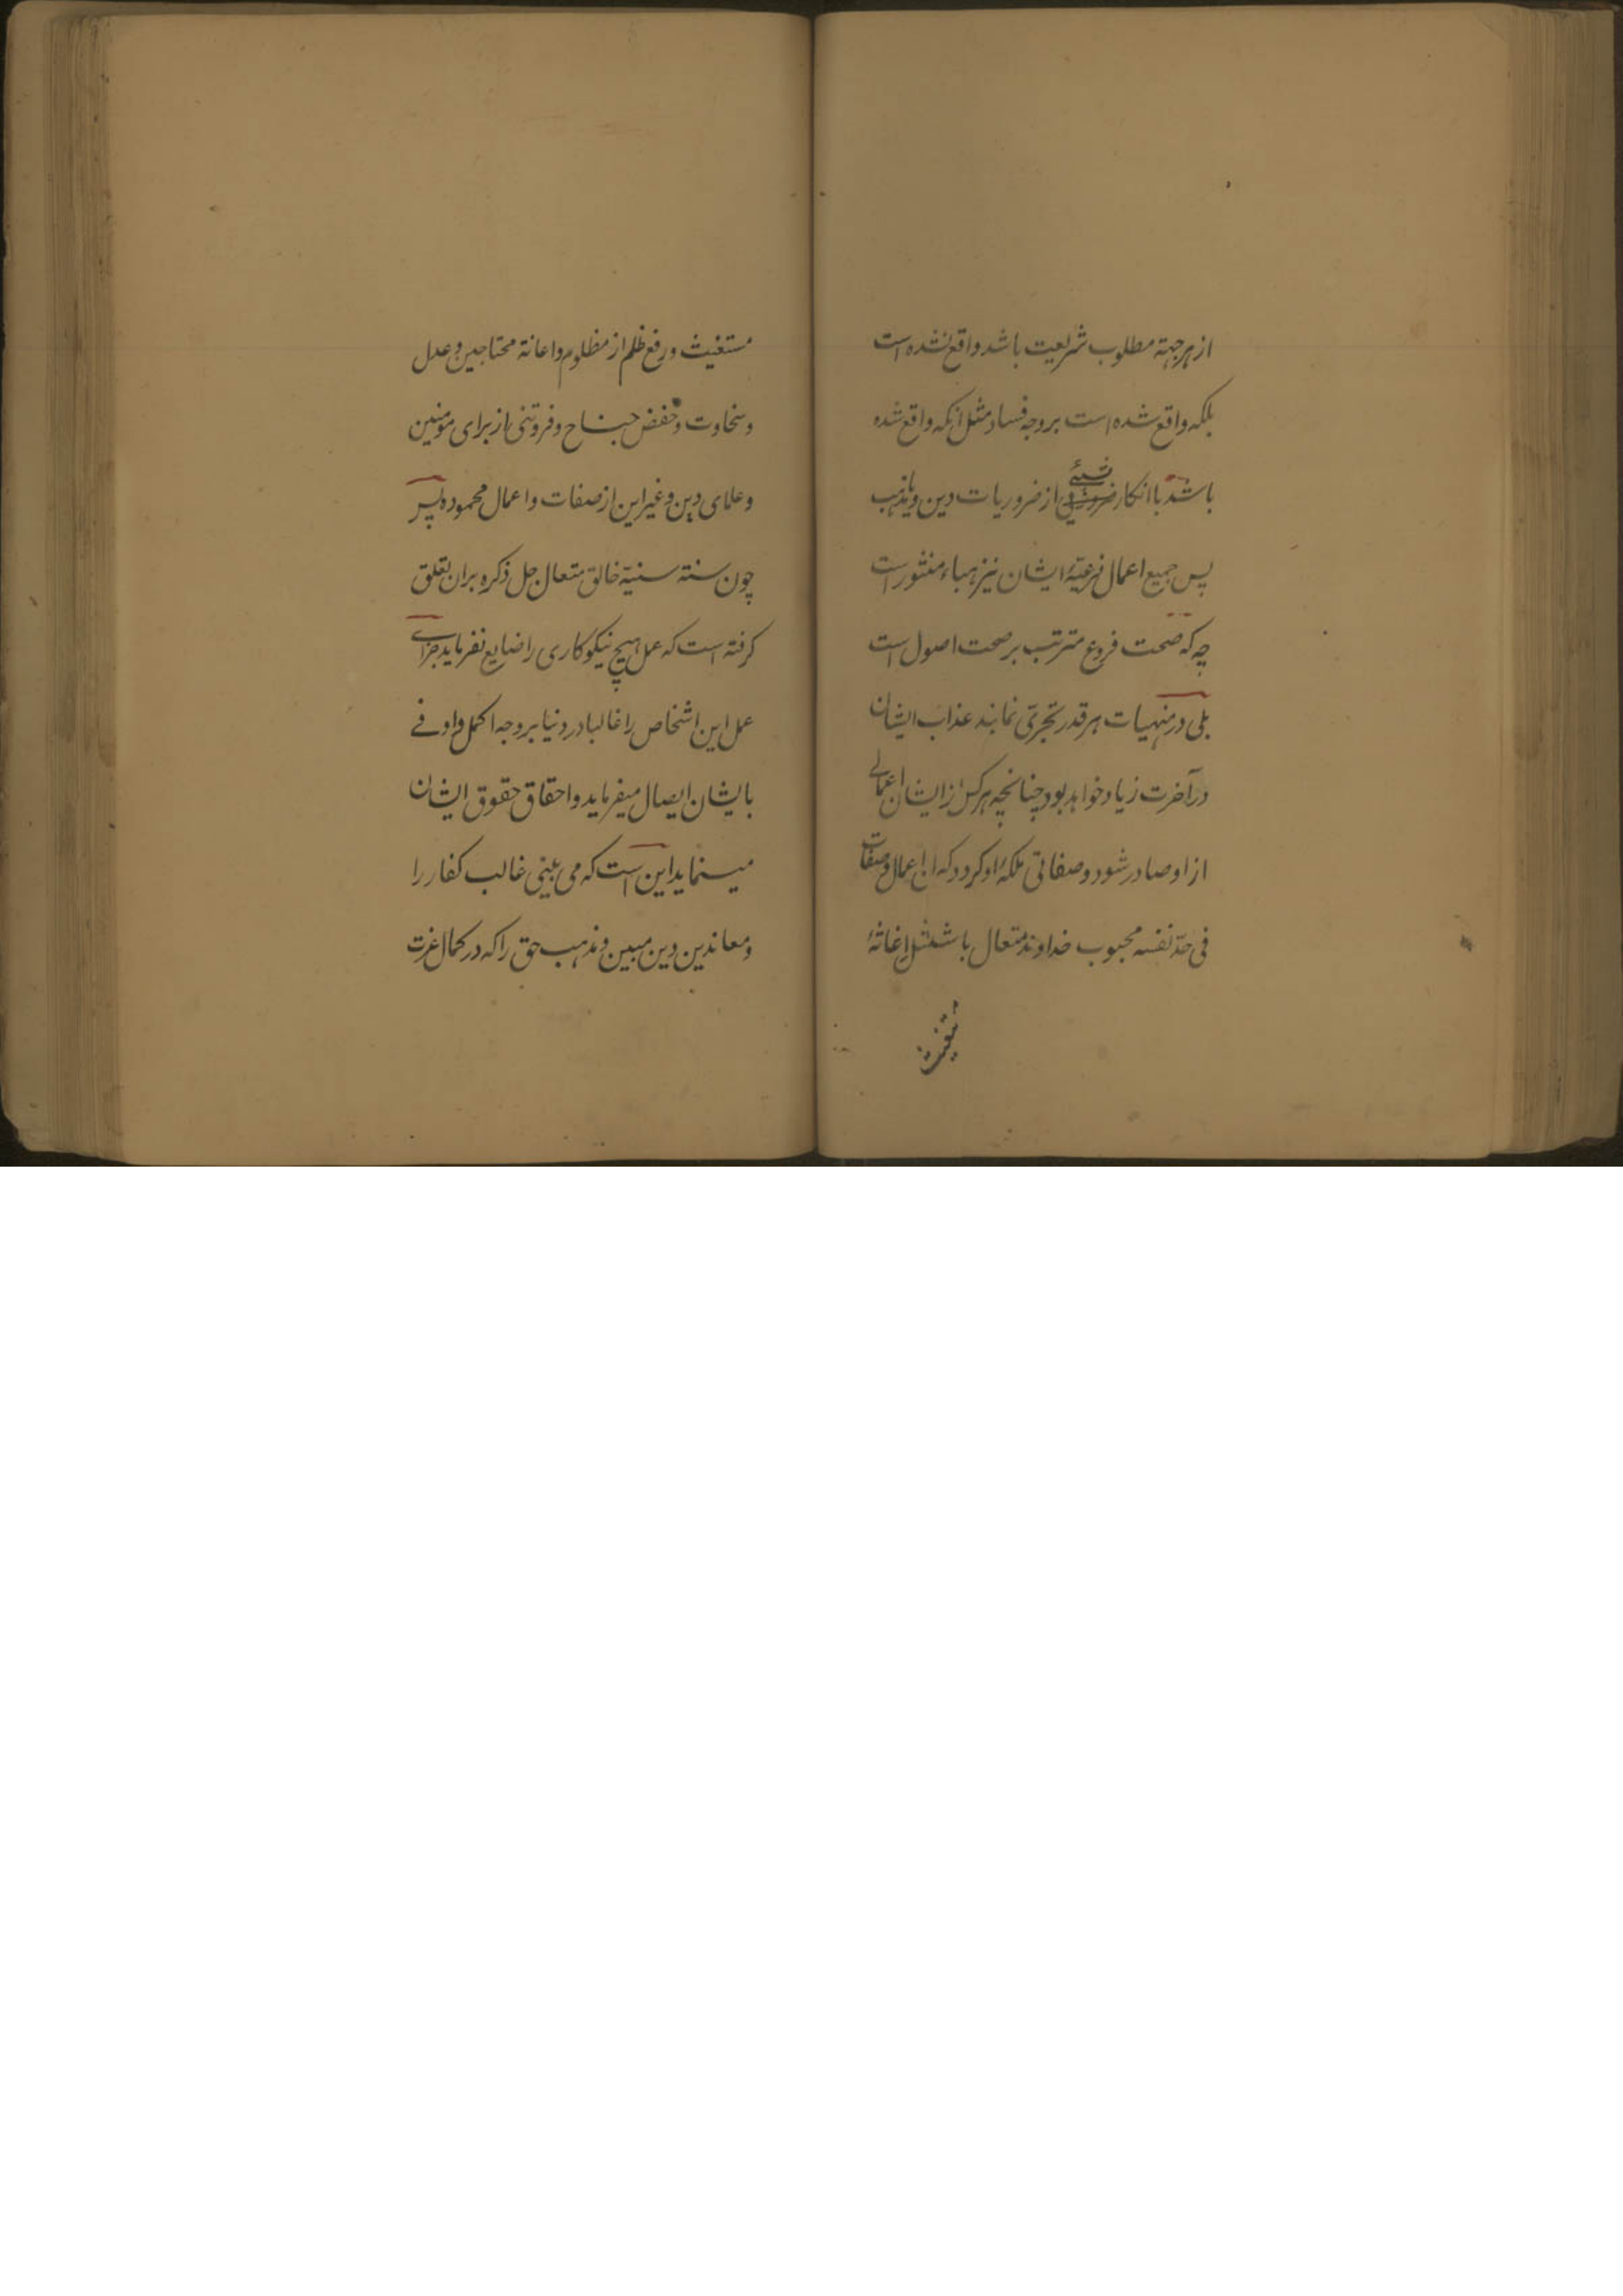 از هر جهة مطلوب شریعت باشد واقع نشده است
بلکه واقع شده است بر وجه فساد مثل انکه واقع شده
باشد با انکار شیئی از ضروریات دین و یا مذهب
پس جمیع اعمال فرعیّهٔ ایشان نیز هباء منثور است
چه که صحت فروع مترتب بر صحت اصول است
بلی در منهیات هر قدر تجرّی نمایند عذاب ایشان
در آخرت زیاد خواهد بود چنانچه هر کس از ایشان اعمالی
از او صادر شود و صفاتی ملکهٔ او کردد که ان اعمال و صفات
فی حدّ نفسه محبوب خداوند متعال باشد مثل اغاثهٔ
مستغیث
مستغیث و رفع ظلم از مظلوم و اعانة محتاجین و عدل
و سخاوت و خفض جناح و فروتنی از برای مؤمنین
و علمای دین و غیر این از صفات و اعمال محموده پس
چون سنته سنیّة خالق متعال جل ذکره بران تعلق
کرفته است که عمل هیچ نیکوکاری را ضایع نفرماید جزای
عمل این اشخاص را غالبا در دنیا بر وجه اکمل و اوفی
بایشان ایصال میفرماید و احقاق حقوق ایشان
مینماید این است که می بینی غالب کفار را
و معاندین دین مبین و مذهب حق را که در کمال عزت